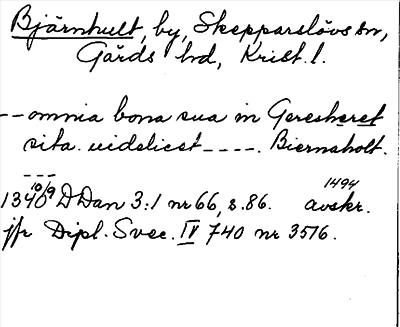 Bjärnhult, by, Skepparslövs sn,
Gärds hd, Krist. l.
--omnia bona sua in Geresheret
sita uidelicet ----. Biernaholt.
---
1340 10/9 DDan 3:1 nr 66, s. 86. 1494 avskr.
jfr Dipl. Svec. IV 740 nr 3516.